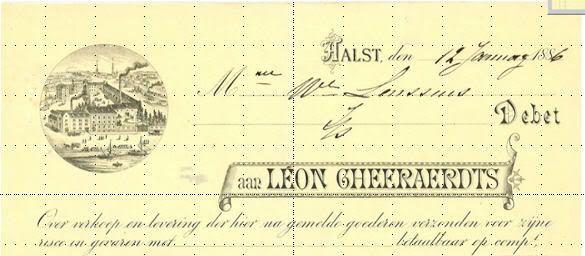 AALST, den 12 January 1886
Mme We Lenssens
Debet
aan LÉON CHEERAERDTS
Over verkoop en levering der hier na gemelde goederen verzonden voor zijne
risco en gevaren met betaalbaar op comp!